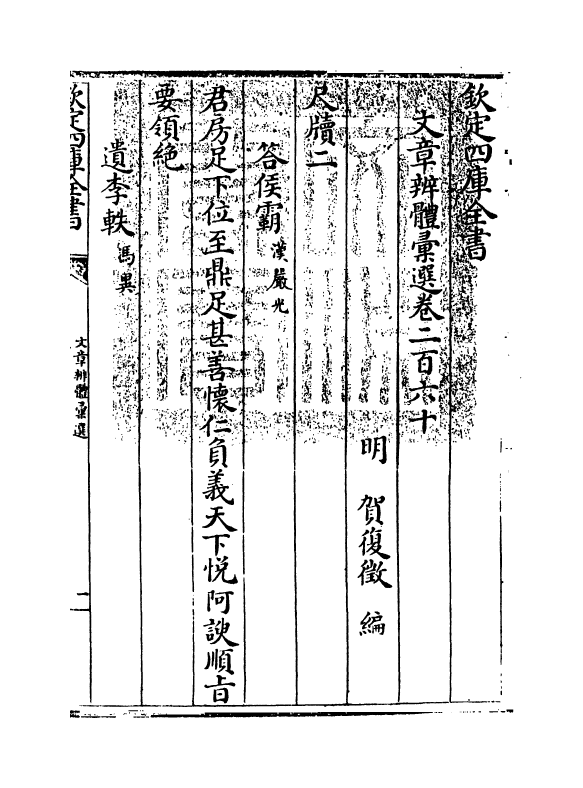 欽定四庫全書
文章辨體彙選卷二百六十
明 賀復徵 編
尺牘二
答侯霸漢嚴光
君房足下位至鼎足甚善懷仁負義天下悅阿諛順㫖
要領絶
遺李軼馮異
欽定四庫全書
文章辨體彙選